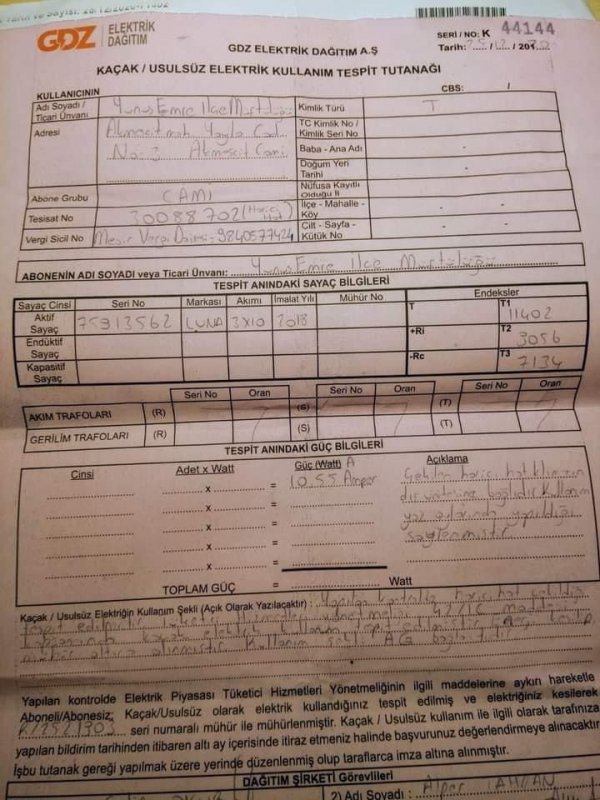 GDZ ELEKTRİK DAĞITIM
44144
GDZ ELEKTRİK DAĞITIM A.Ş
SERİ / NO: K
Tarih:
KAÇAK / USULSÜZ ELEKTRİK KULLANIM TESPİT TUTANAĞI
CBS: /
KULLANICININ
Adı Soyadı / Ticari Ünvanı Yunus Emre İlçe Müftülüğü Kimlik Türü T
Adresi Akmescit mah. Yayla Cad. No: 3 Akmescit Cami
TC Kimlik No / Kimlik Seri No
Baba - Ana Adı -
Doğum Yeri Tarihi
Nüfusa Kayıtlı Olduğu İl
Abone Grubu CAMİ
İlçe - Mahalle - Köy -
Tesisat No 30088702 (Harici Hat)
Cilt - Sayfa - Kütük No -
Vergi Sicil No Mesir Vergi Dairesi 9840577424
ABONENİN ADI SOYADI veya Ticari Ünvanı: Yunus Emre İlçe Müftülüğü
TESPİT ANINDAKİ SAYAÇ BİLGİLERİ
Sayaç Cinsi Seri No Markası Akımı İmalat Yılı Mühür No Endeksler
Aktif Sayaç 75913562 LUNA 3x10 2013 T T1 11402
Endüktif Sayaç +Ri T2 3056
Kapasitif Sayaç -Rc T3 7134
Seri No Oran Seri No Oran Seri No Oran
AKIM TRAFOLARI (R) (S) (T)
GERİLİM TRAFOLARI (R) (S) (T)
TESPİT ANINDAKİ GÜÇ BİLGİLERİ
Cinsi Adet x Watt Güç (Watt) A Açıklama
x = 10.55 Amper Çekilen harici hat klimanın
x = dış ünitesine bağlıdır. Kullanım
x = yaz aylarında yapıldığı
x = söylenmiştir
x =
TOPLAM GÜÇ = Watt
Kaçak / Usulsüz Elektriğin Kullanım Şekli (Açık Olarak Yazılacaktır) : Yapılan kontrolde harici hat çekildiği
tespit edilmiştir. Tüketici Hizmetleri yönetmeliği 42/1C maddesi
kapsamında kaçak elektrik kullanımı tespit edilmiştir.
mühür altına alınmıştır. Kullanım şekli AG
Yapılan kontrolde Elektrik Piyasası Tüketici Hizmetleri Yönetmeliğinin ilgili maddelerine aykırı hareketle
Aboneli/Abonesiz, Kaçak/Usulsüz olarak elektrik kullandığınız tespit edilmiş ve elektriğiniz kesilerek
seri numaralı mühür ile mühürlenmiştir. Kaçak / Usulsüz kullanım ile ilgili olarak tarafınıza
yapılan bildirim tarihinden itibaren altı ay içerisinde itiraz etmeniz halinde başvurunuz değerlendirmeye alınacaktır.
İşbu tutanak gereği yapılmak üzere yerinde düzenlenmiş olup taraflarca imza altına alınmıştır.
DAĞITIM ŞİRKETİ Görevlileri
2) Adı Soyadı : Alper